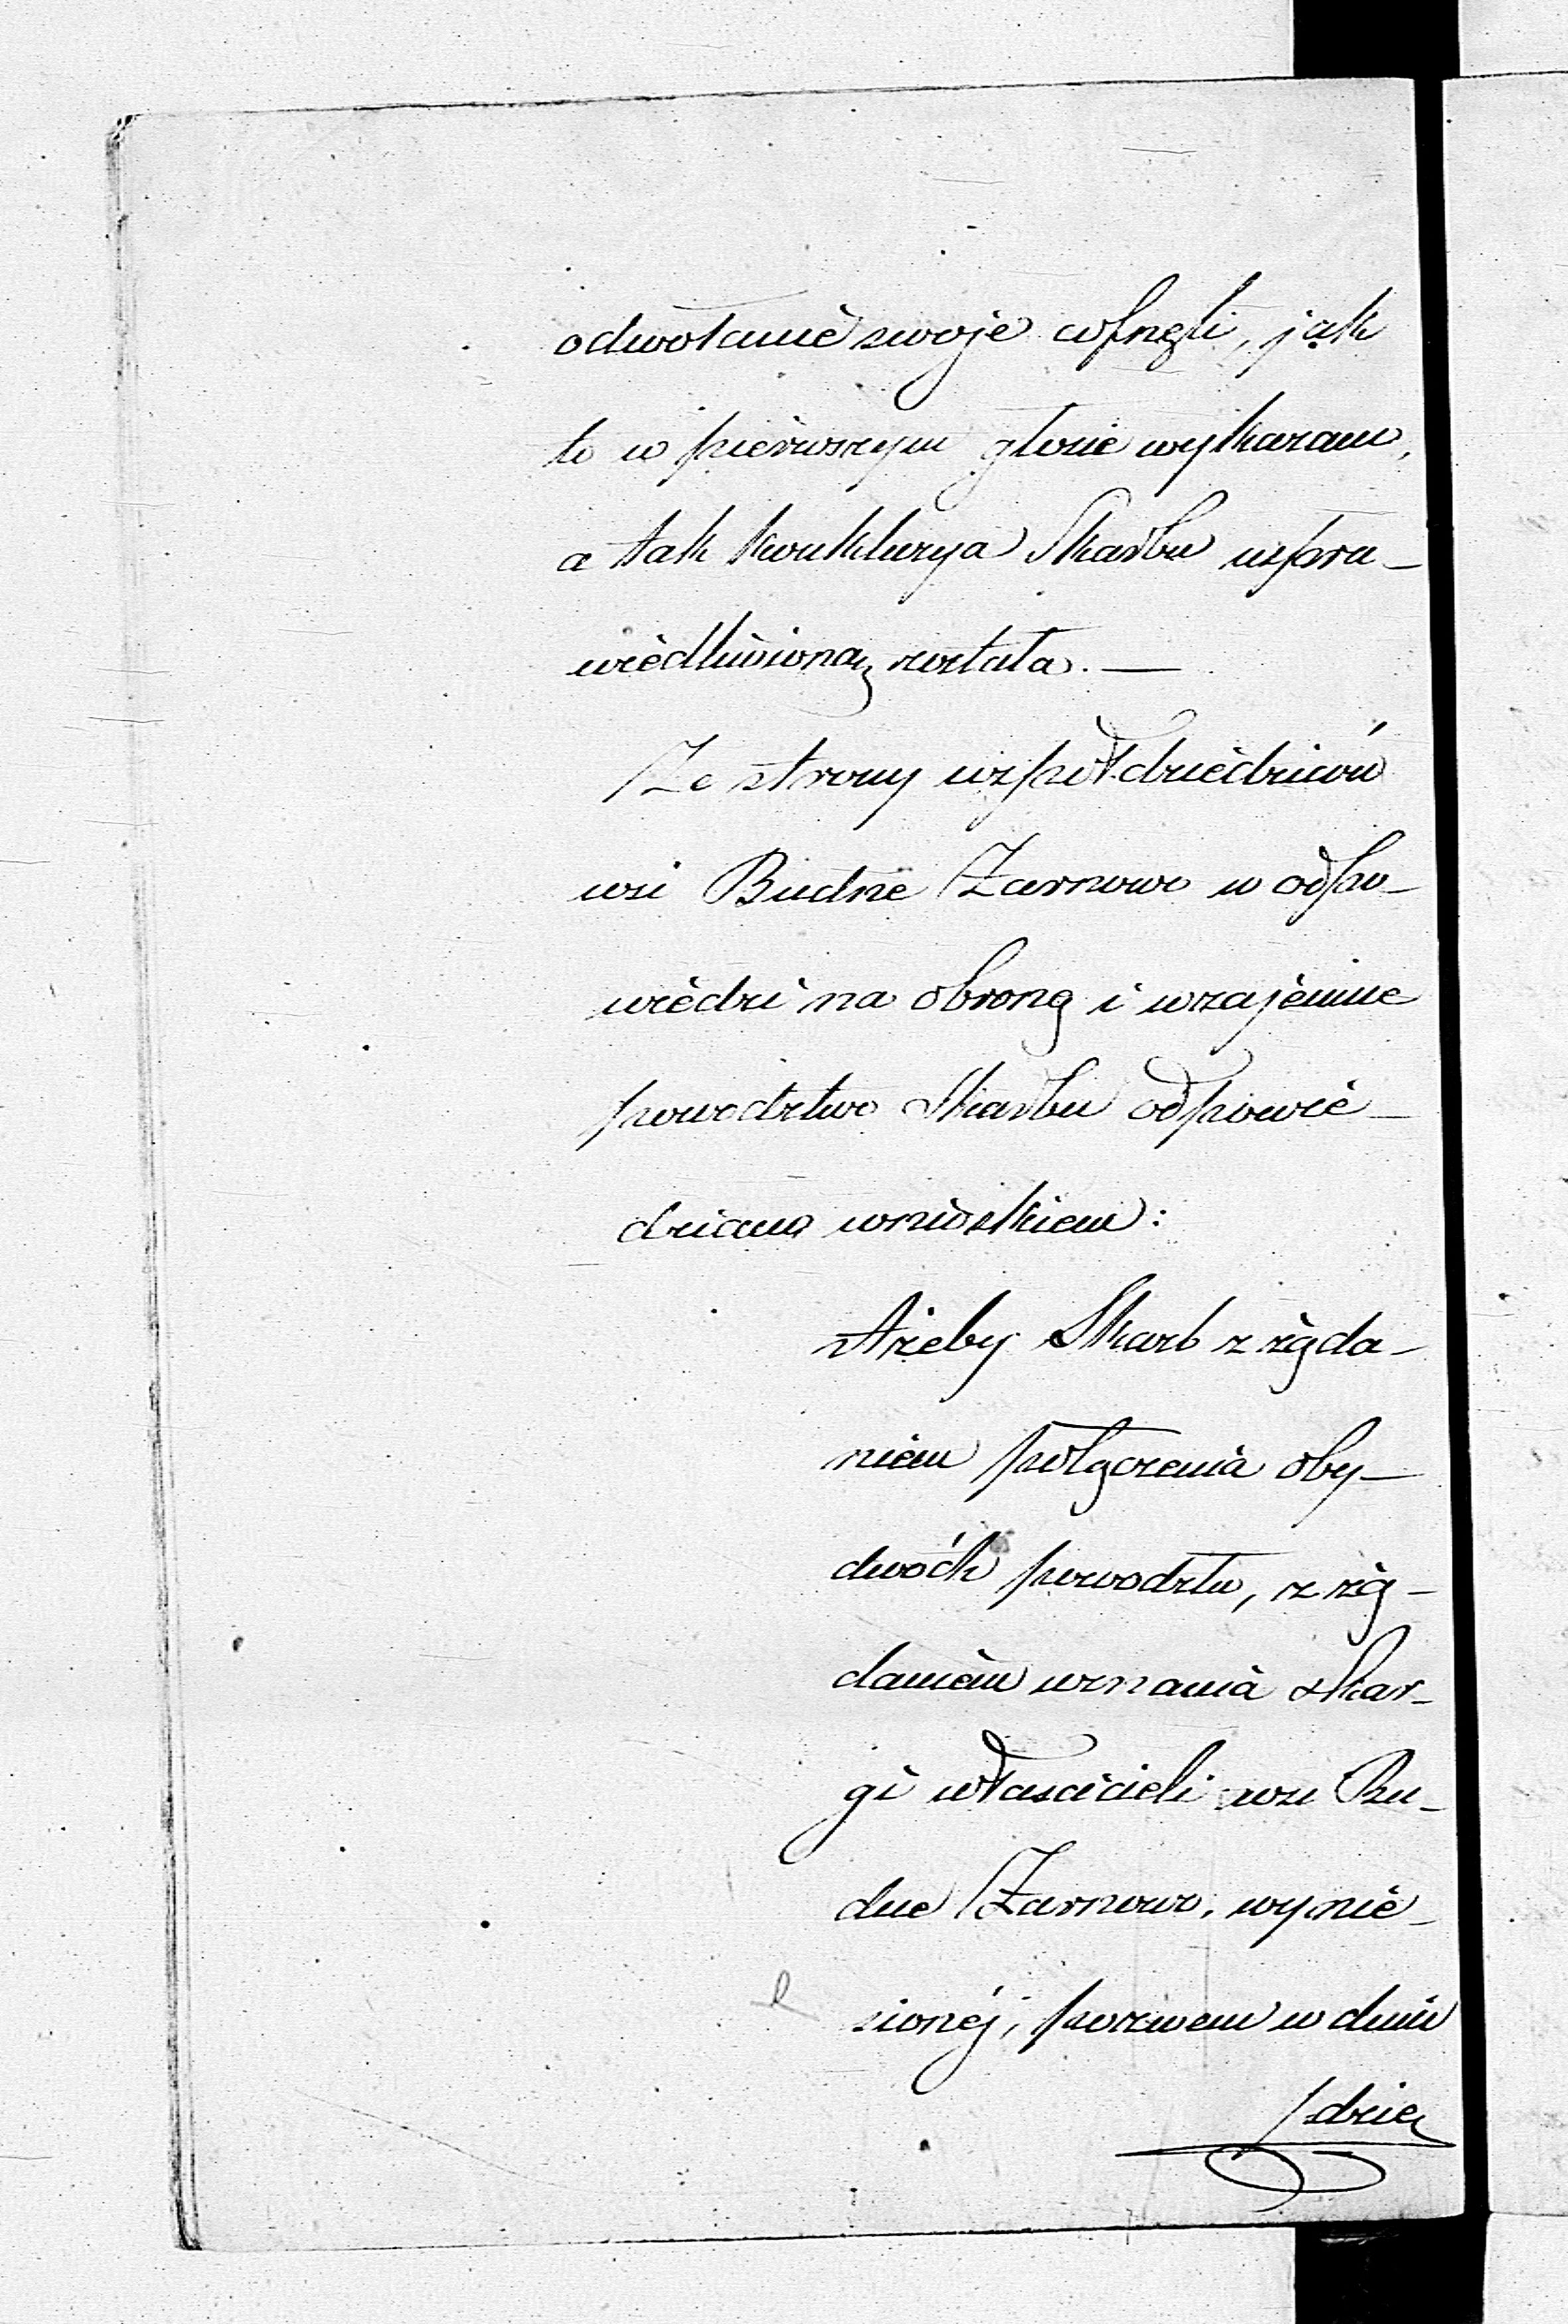 odwołanie swoje cofnęli, jak
to w pierwszym głosie wykazano,
a tak konkluzya Skarbu uspra-
wiedliwioną została. —
Ze strony współdziedziców
wsi Budne Żarnowo w odpo-
wiedzi na obronę i wzajemne
powództwo Skarbu odpowie-
dziano wnioskiem:
Ażeby Skarb z żąda-
niem połączenia oby-
dwóch powództw, z żą-
daniem uznania skar-
gi właścicieli wsi Bu-
dne Żarnowo, wynie-
sionéj, pozwem w dniu